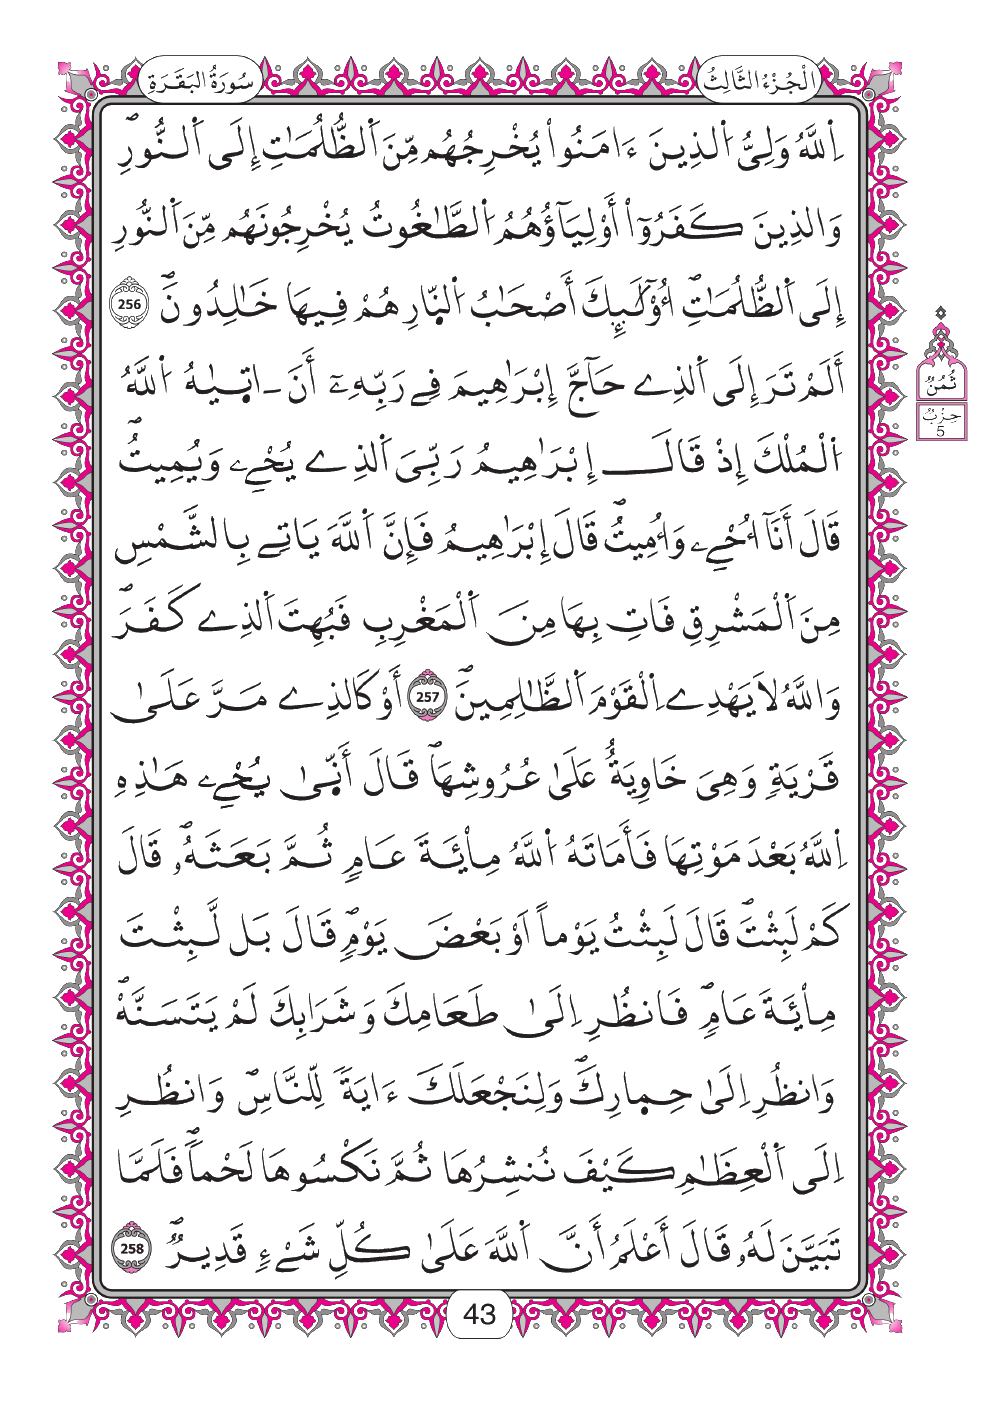 الْجُزْءُ الثَّالِثُ
سُورَةُ الْبَقَرَةِ
اِ۬للَّهُ وَلِيُّ اُ۬لذِينَ ءَامَنُواْ يُخْرِجُهُم مِّنَ اَ۬لظُّلُمَٰتِ إِلَى اَ۬لنُّورِۖ
وَالذِينَ كَفَرُوٓاْ أَوْلِيَآؤُهُمُ اُ۬لطَّٰغُوتُ يُخْرِجُونَهُم مِّنَ اَ۬لنُّورِ
إِلَى اَ۬لظُّلُمَٰتِۖ أُوْلَٰٓئِكَ أَصْحَٰبُ اُ۬لنّ۪ارِ هُمْ فِيهَا خَٰلِدُونَۖ 256
أَلَمْ تَرَ إِلَى اَ۬لذِے حَآجَّ إِبْرَٰهِيمَ فِے رَبِّهِۦٓ أَنَ اٰت۪يٰهُ اُ۬للَّهُ
اُ۬لْمُلْكَ إِذْ قَالَ إِبْرَٰهِيمُ رَبِّيَ اَ۬لذِے يُحْيِۦ وَيُمِيتُۖ
قَالَ أَنَآ أُحْيِۦ وَأُمِيتُۖ قَالَ إِبْرَٰهِيمُ فَإِنَّ اَ۬للَّهَ يَاتِے بِالشَّمْسِ
مِنَ اَ۬لْمَشْرِقِ فَاتِ بِهَا مِنَ اَ۬لْمَغْرِبِ فَبُهِتَ اَ۬لذِے كَفَرَۖ
وَاللَّهُ لَا يَهْدِے اِ۬لْقَوْمَ اَ۬لظَّٰلِمِينَۖ 257 أَوْ كَالذِے مَرَّ عَلَىٰ
قَرْيَةٍ وَهِيَ خَاوِيَةٌ عَلَىٰ عُرُوشِهَاۖ قَالَ أَنّ۪ىٰ يُحْيِۦ هَٰذِهِ
اِ۬للَّهُ بَعْدَ مَوْتِهَا فَأَمَاتَهُ اُ۬للَّهُ مِاْئَةَ عَامٍ ثُمَّ بَعَثَهُۥۖ قَالَ
كَمْ لَبِثْتَۖ قَالَ لَبِثْتُ يَوْماً أَوْ بَعْضَ يَوْمٍۖ قَالَ بَل لَّبِثْتَ
مِاْئَةَ عَامٍۖ فَانظُرِ اِلَىٰ طَعَامِكَ وَشَرَابِكَ لَمْ يَتَسَنَّهْۖ
وَانظُرِ اِلَىٰ حِم۪ارِكَۖ وَلِنَجْعَلَكَ ءَايَةً لِّلنَّاسِۖ وَانظُرِ
اِلَى اَ۬لْعِظَٰمِ كَيْفَ نُنشِرُهَا ثُمَّ نَكْسُوهَا لَحْماًۖ فَلَمَّا
تَبَيَّنَ لَهُۥ قَالَ أَعْلَمُ أَنَّ اَ۬للَّهَ عَلَىٰ كُلِّ شَےْءٍ قَدِيرٌۖ 258
ثُمُنٌ
حِزْبُ
5
43